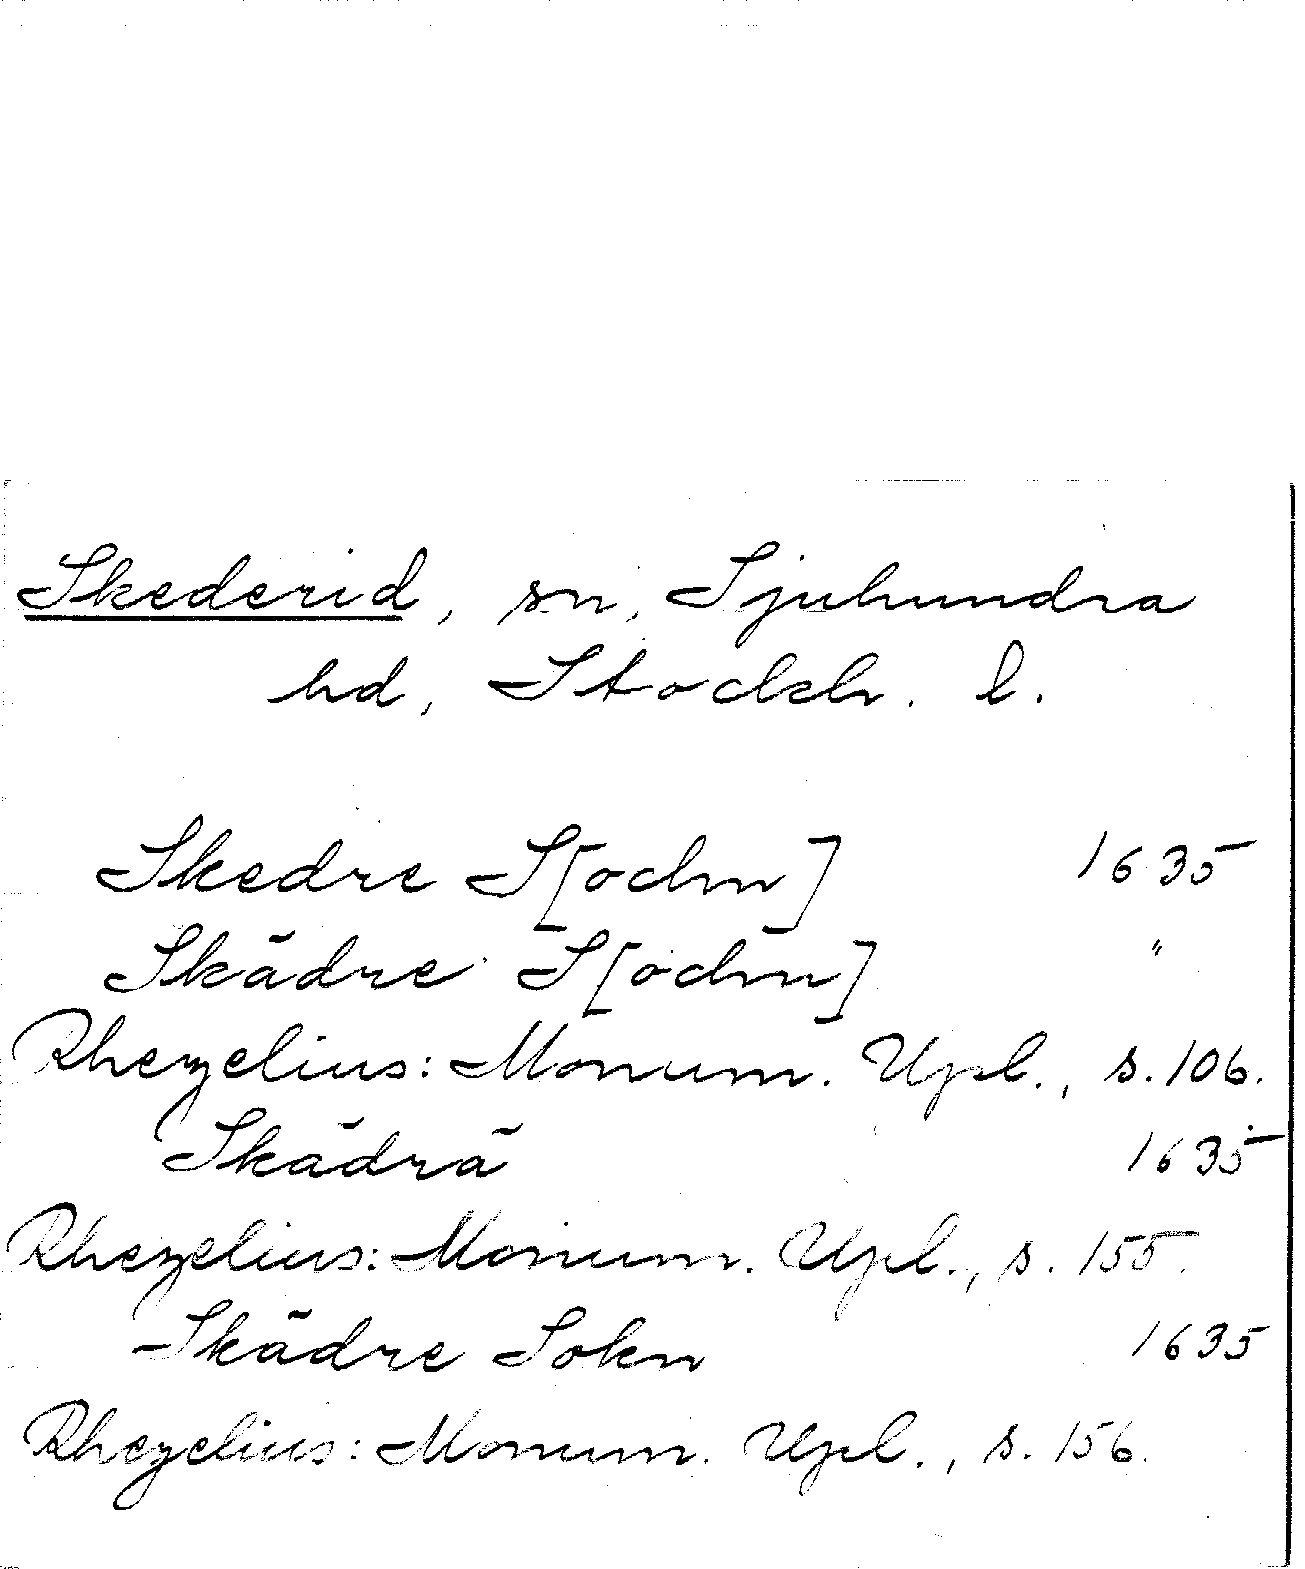 Skederid, sn, Sjuhundra
hd, Stockh. l.
Skedre S[okn] 1635
Skädre S[okn] "
Rhezelius: Monum. Upl., s. 106.
Skädrä 1635
Rhezelius: Monum. Upl., s. 155.
Skädre Sokn 1635
Rhezelius: Monum. Upl., s. 156.